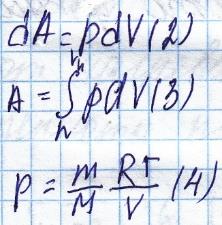 dA = pdV (2)
A = ∫ pdV (3)
p = m/M RT/V (4)